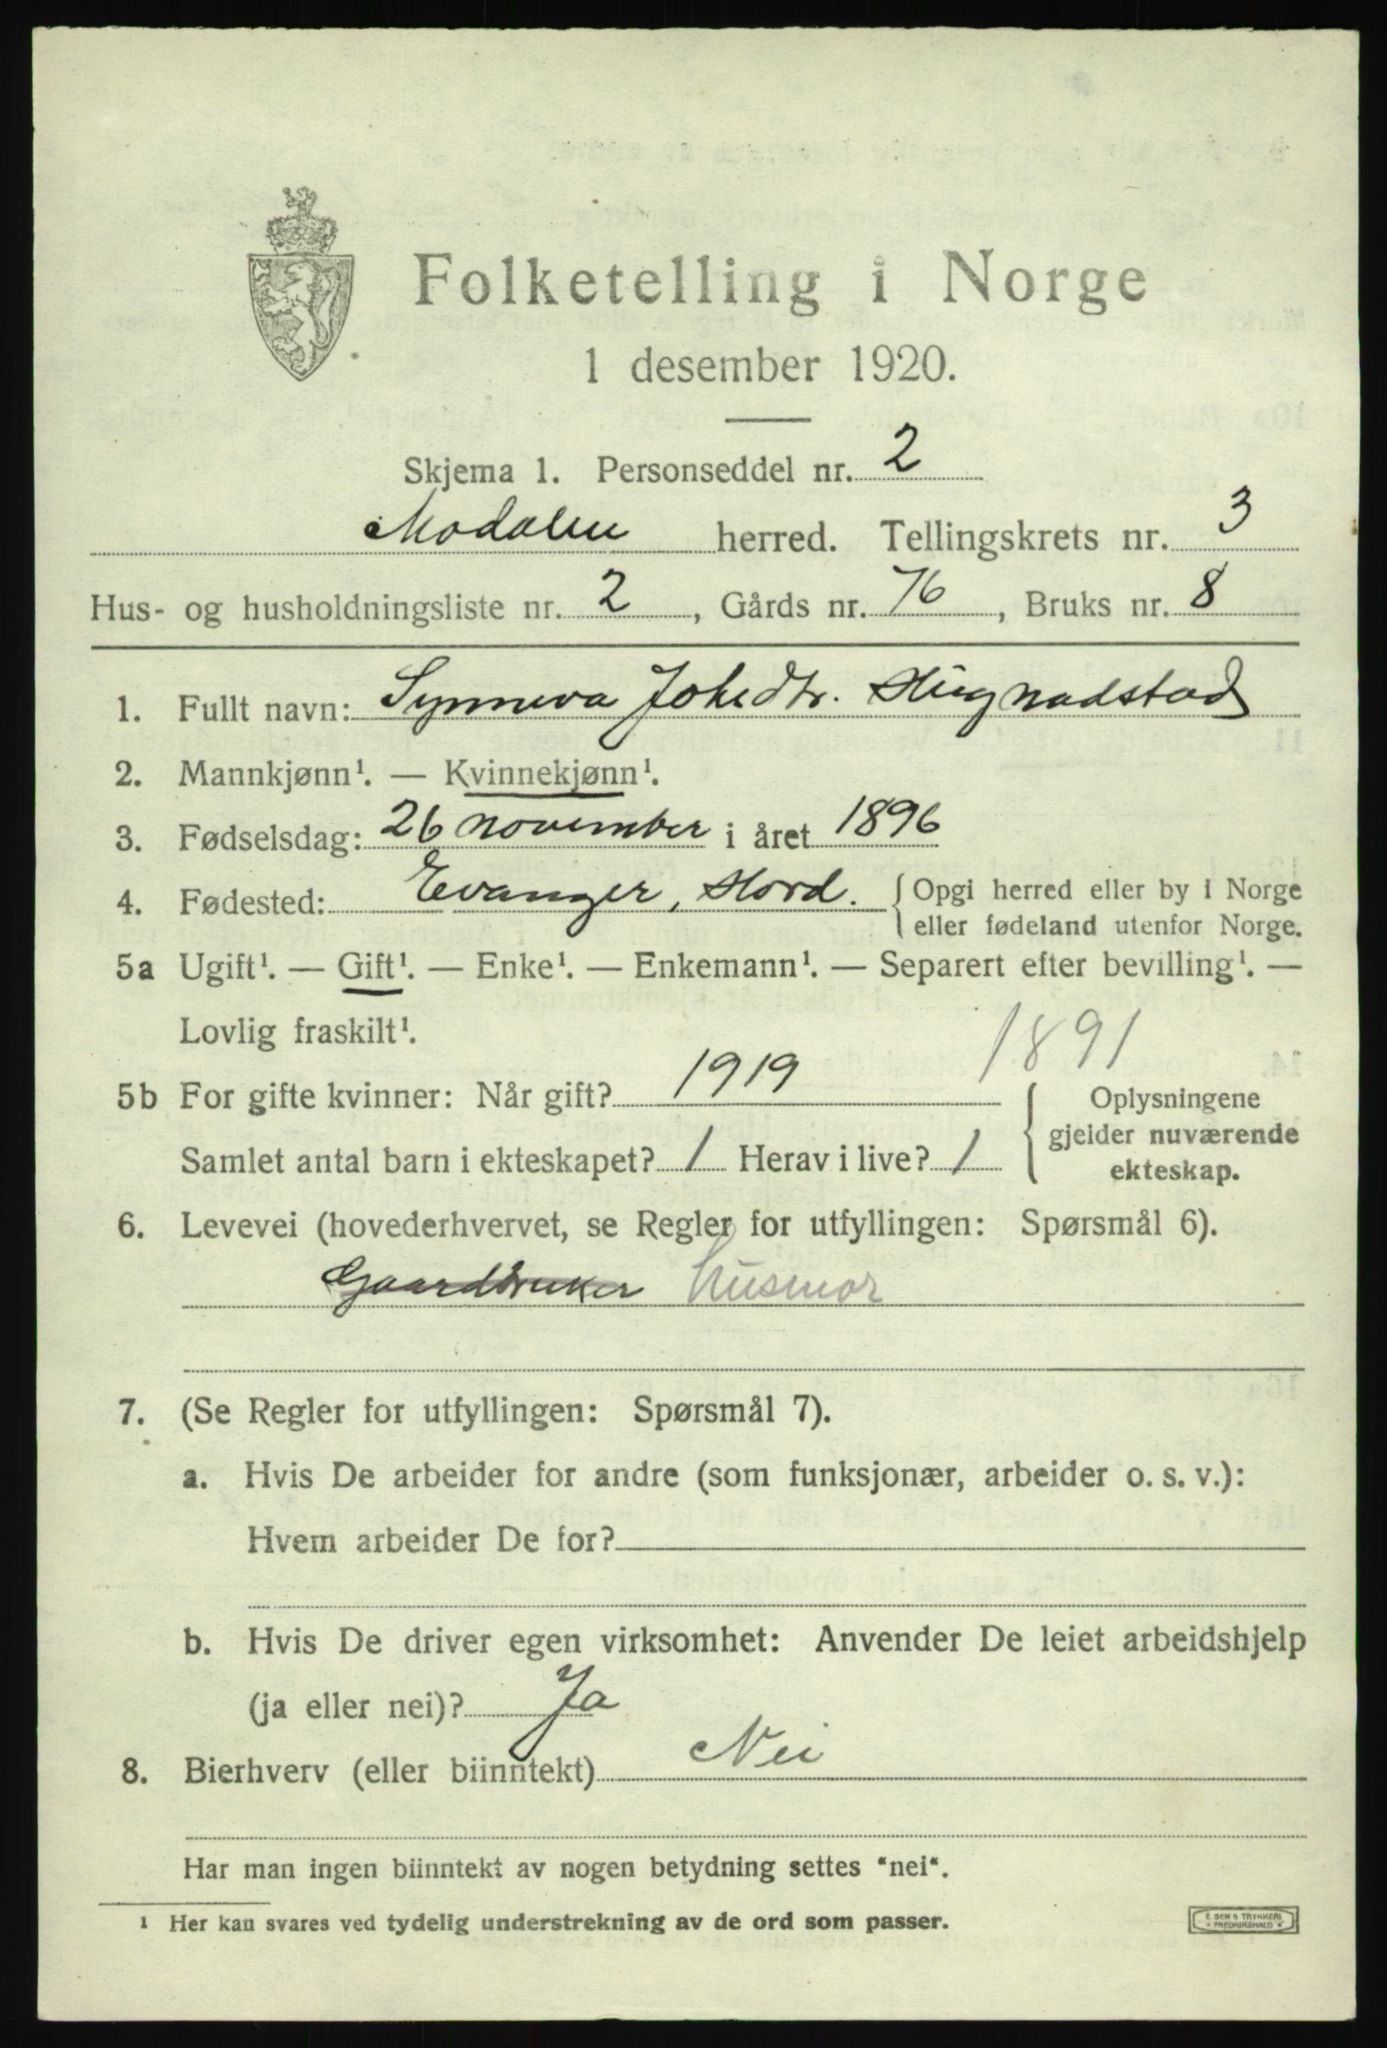 Folketelling i Norge
1 desember 1920.
Skjema 1. Personseddel nr. 2
Modalen herred. Tellingskrets nr. 3
Hus- og husholdningsliste nr. 2, Gårds nr. 76, Bruks nr. 8
1. Fullt navn: Synneva Johsdtr. Hugnadstad
2. Mannkjønn¹. — Kvinnekjønn¹.
3. Fødselsdag: 26 november i året 1896
4. Fødested: Evanger, Hord. { Opgi herred eller by i Norge
eller fødeland utenfor Norge.
5a Ugift¹. — Gift¹. — Enke¹. — Enkemann¹. — Separert efter bevilling¹. —
Lovlig fraskilt¹.
1891
5b For gifte kvinner: Når gift? 1919
Samlet antal barn i ekteskapet? 1 Herav i live? 1
{ Oplysningene
gjelder nuværende
ekteskap.
6. Levevei (hovederhvervet, se Regler for utfyllingen: Spørsmål 6).
Gaardbruker husmor
7. (Se Regler for utfyllingen: Spørsmål 7).
a. Hvis De arbeider for andre (som funksjonær, arbeider o. s. v.):
Hvem arbeider De for?
b. Hvis De driver egen virksomhet: Anvender De leiet arbeidshjelp
(ja eller nei)? Ja
8. Bierhverv (eller biinntekt) Nei
Har man ingen biinntekt av nogen betydning settes "nei".
¹ Her kan svares ved tydelig understrekning av de ord som passer.
E. SEM'S TRYKKERI
* FREDRIKSHALD *